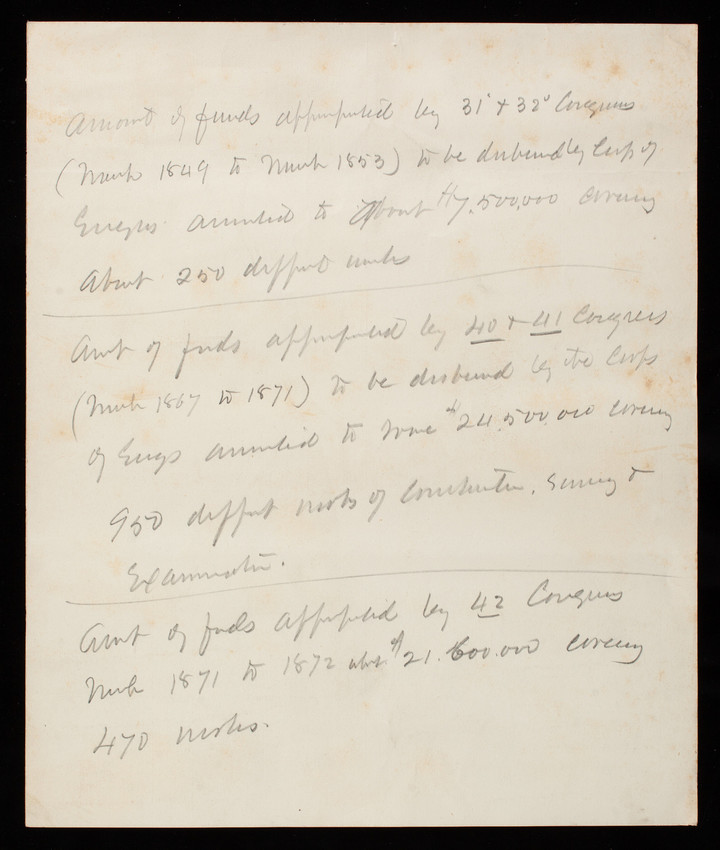 Amount of funds appropriated by 31st & 32d Congress
(March 1849 to March 1853) to be disbursed by Corps of
Engrs. amounted to About $7,500,000 covering
About 250 diffent works
Amt of funds appropriated by 40 & 41 Congress
(March 1867 to 1871) to be disbursed by the Corps
of Engs amounted to $24,500,000 covering
950 diffent works of Construction, Survey &
Examination.
Amt of funds appropriated by 42 Congress
March 1871 to 1872 abt. $21.600.000 covering
470 works.